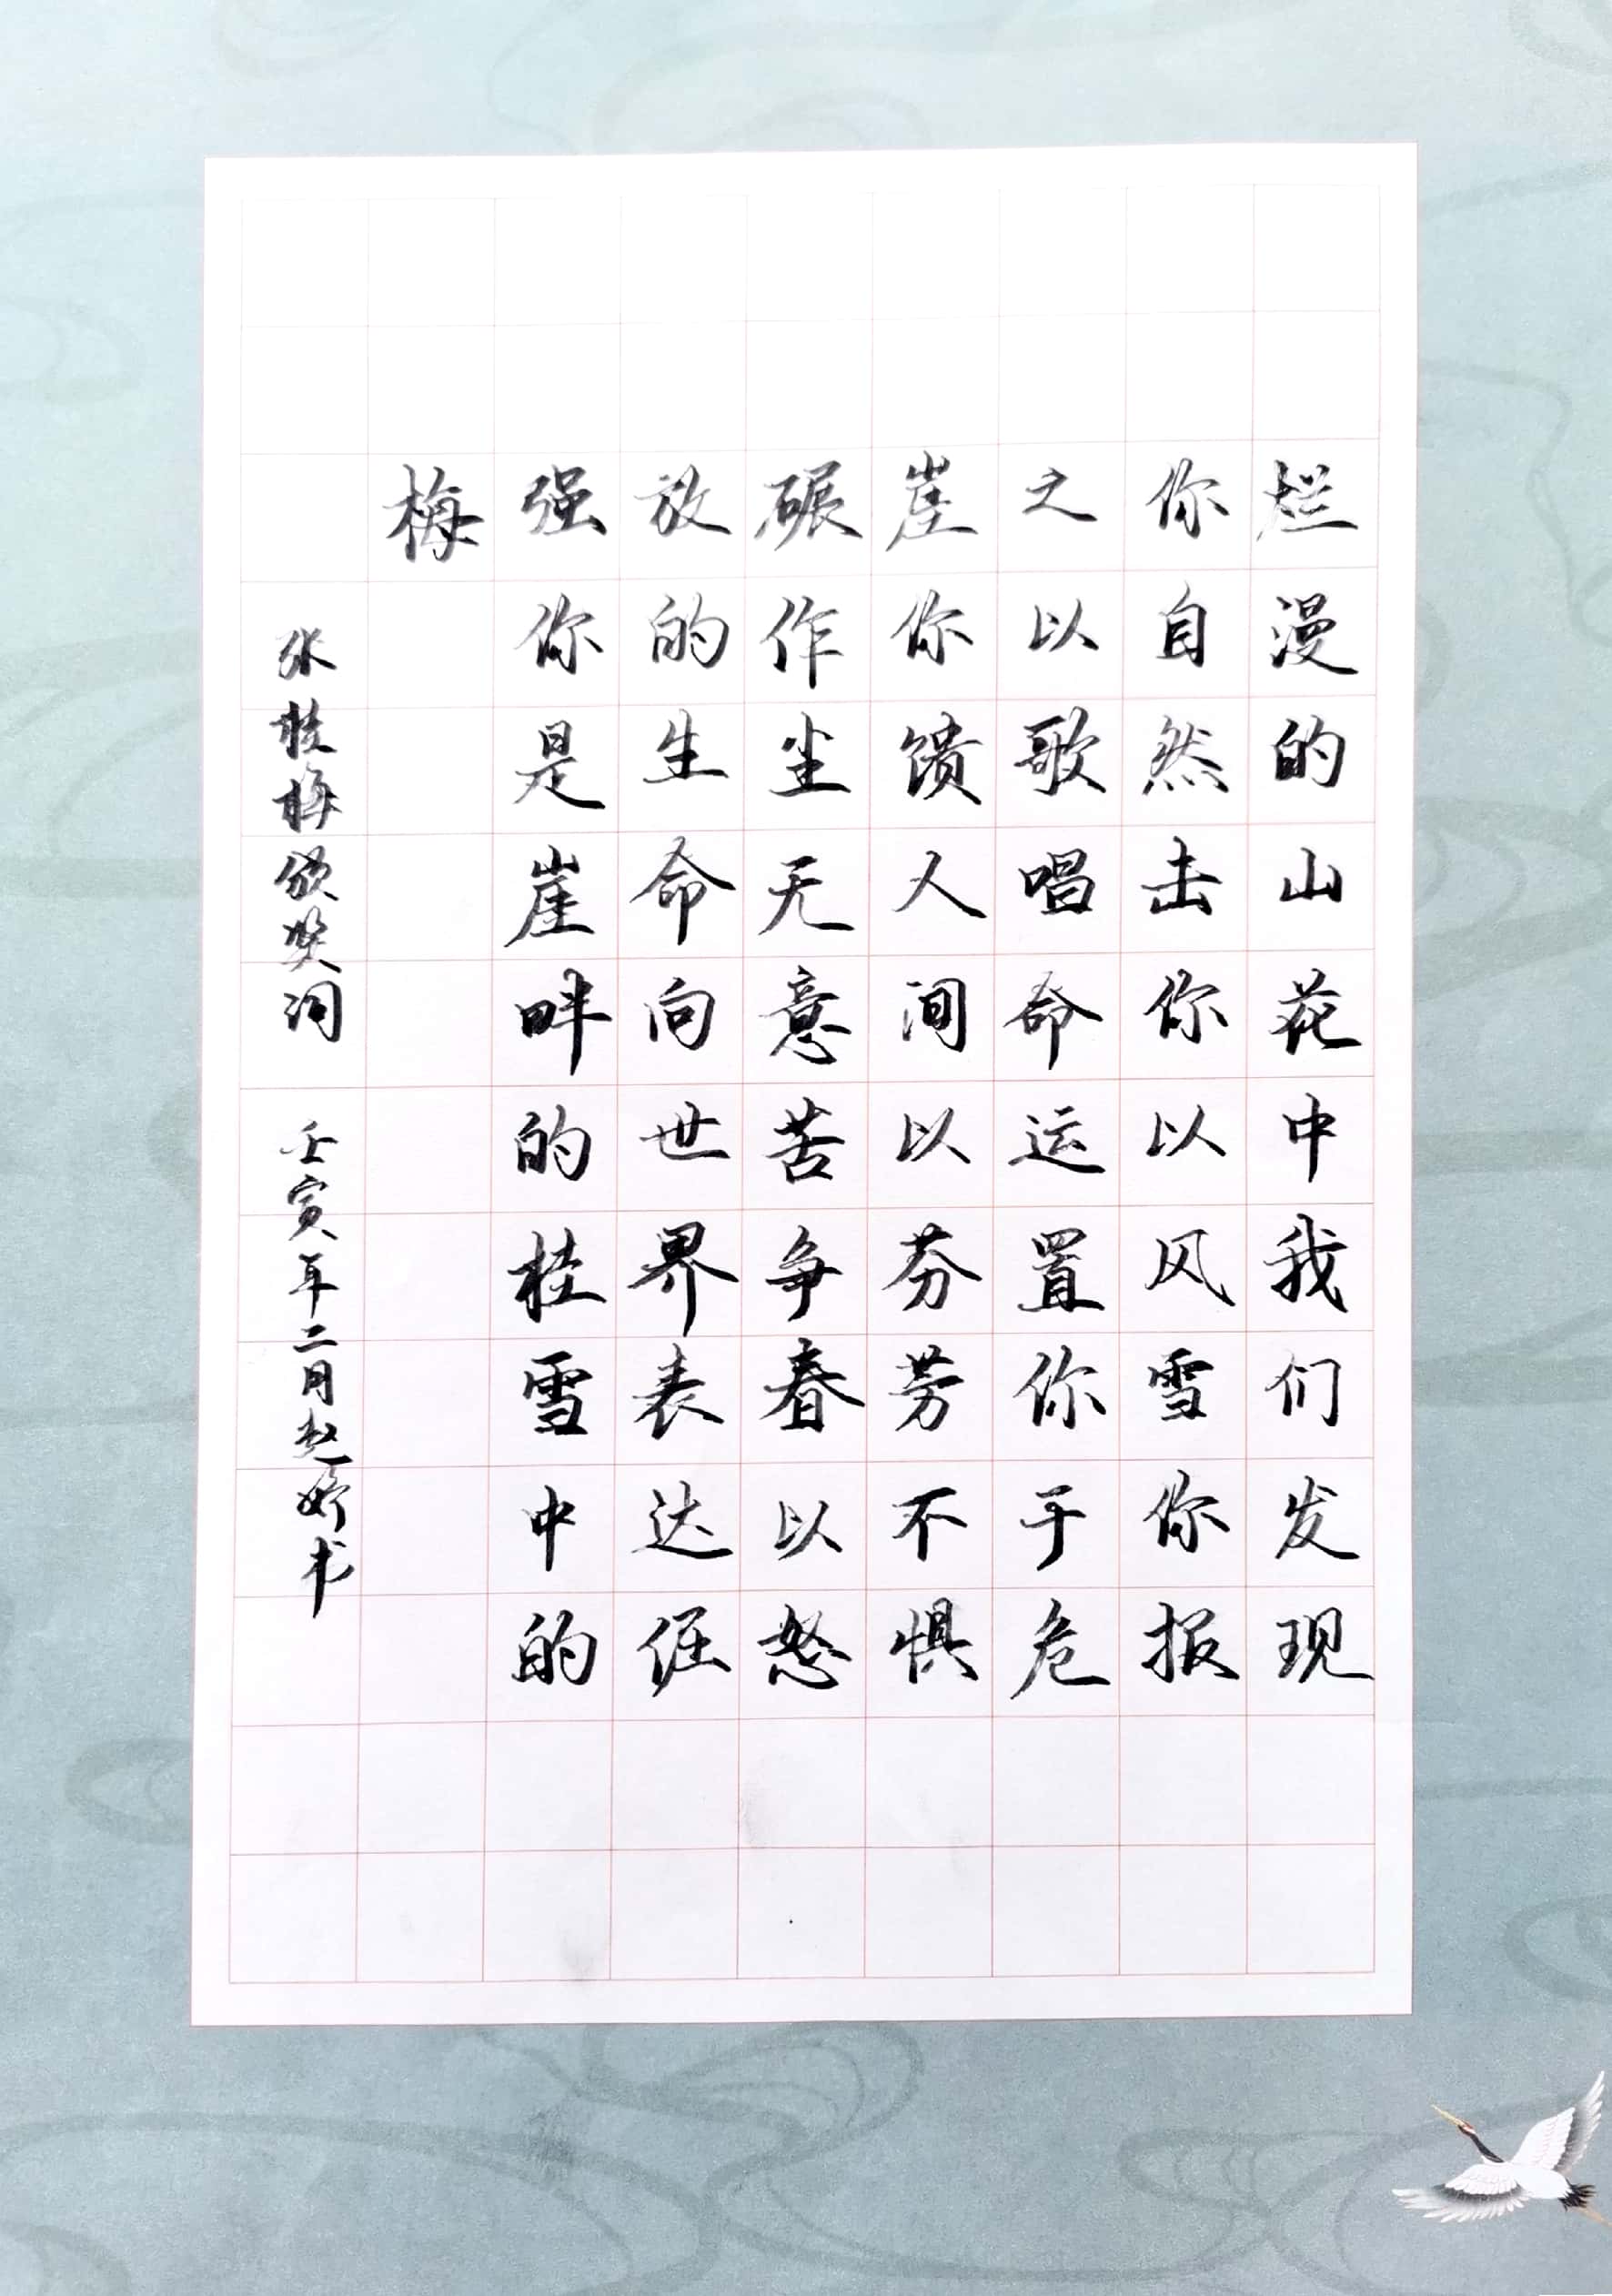 烂漫的山花中我们发现
你自然击你以风雪你报
之以歌唱命运置你于危
崖你馈人间以芬芳不惧
碾作尘无意苦争春以怒
放的生命向世界表达倔
强你是崖畔的桂雪中的
梅
张桂梅颁奖词 壬寅年二月赵娇书